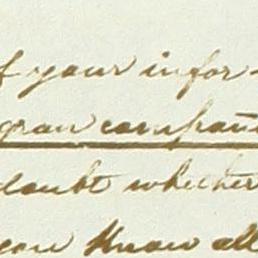 f your infor-
graw compani
doubt whether
you know all